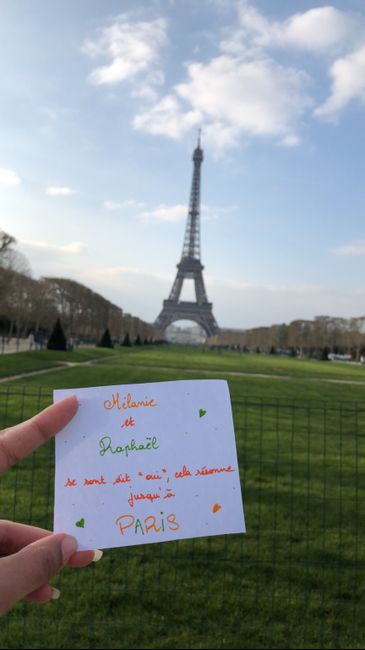 Mélanie
et
Raphaël
se sont dit "oui", cela résonne
jusqu'à
PARIS